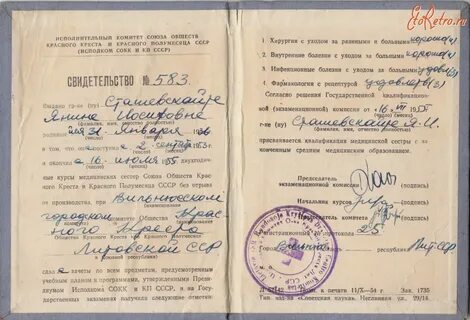 ИСПОЛНИТЕЛЬНЫЙ КОМИТЕТ СОЮЗА ОБЩЕСТВ
КРАСНОГО КРЕСТА И КРАСНОГО ПОЛУМЕСЯЦА СССР
(ИСПОЛКОМ СОКК И КП СССР)
СВИДЕТЕЛЬСТВО № 583
Выдано гр-ке (ну) Сташевской
Янине Иосифовне
(фамилия, имя, отчество полностью)
31 января
в том, что он поступила 2 сентября 1953 г.
и окончила 16 июля 1955
двухгодичные курсы медицинских сестер Союза Обществ Красного Креста и Красного Полумесяца СССР без отрыва
от производства, при Вильнюсском
городском комитете Общества Красного Креста
Литовской ССР
(союзной республики)
сдала зачеты по всем предметам, предусмотренным
учебным планом и программами, утвержденными Президиумом Исполкома СОКК и КП СССР, и на
Государственных экзаменах получила следующие отметки:
1. Хирургия с уходом за ранеными и больными хорошо(4)
2. Внутренние болезни с уходом за больными хорошо(4)
3. Инфекционные болезни с уходом за больными удовл(3)
4. Фармакология с рецептурой удовлетв(3)
Согласно решения Государственной квалификационной
(экзаменационной) комиссии от „16“ VII 1955 г.
гр-ке Сташевской Я. И.
(фамилия, имя, отчество полностью)
присваивается квалификация медицинской сестры с законченным средним медицинским образованием.
Председатель
экзаменационной комиссии (подпись)
Начальник курсов (подпись)
Председатель комитета (подпись)
республика Лит ССР
к печати 11/X—54 г. Зак. 1735
Тип. изд-ва «Советская наука». Неглинная ул., 29/14
EtoRetro.ru